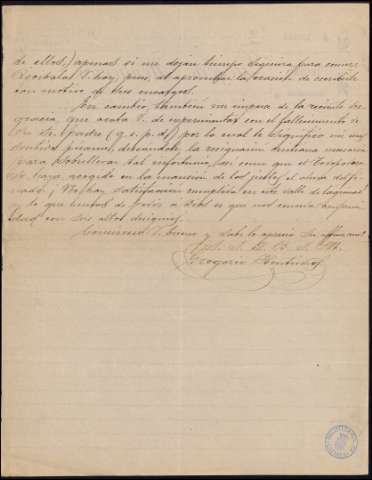 de ellos) apenas si me dejan tiempo siquiera para comer.
Recíbalas V. hoy, pues, al aprovechar la ocasión de escribirle
con motivo de sus encargos.
En cambio, también me impuse de la reciente des-
gracia, que acaba V. de experimentar con el fallecimiento de
su Sr. padre (q. s. p. d.) por la cual le significo mi muy
sentido pésame, deseándole la resignación cristiana necesaria
para sobrellevar tal infortunio, así como que el Todopodero-
so haya acogido en la mansión de los justos el alma del fi-
nado. ¡No hay satisfacción cumplida en este valle de lágrimas!
lo que hemos de pedir a Dios es que nos envíe conformi-
dad con sus altos designios.
Consérvese V. bueno y sabe le aprecia su affmo. am.
q. b. s. m.
Gregorio